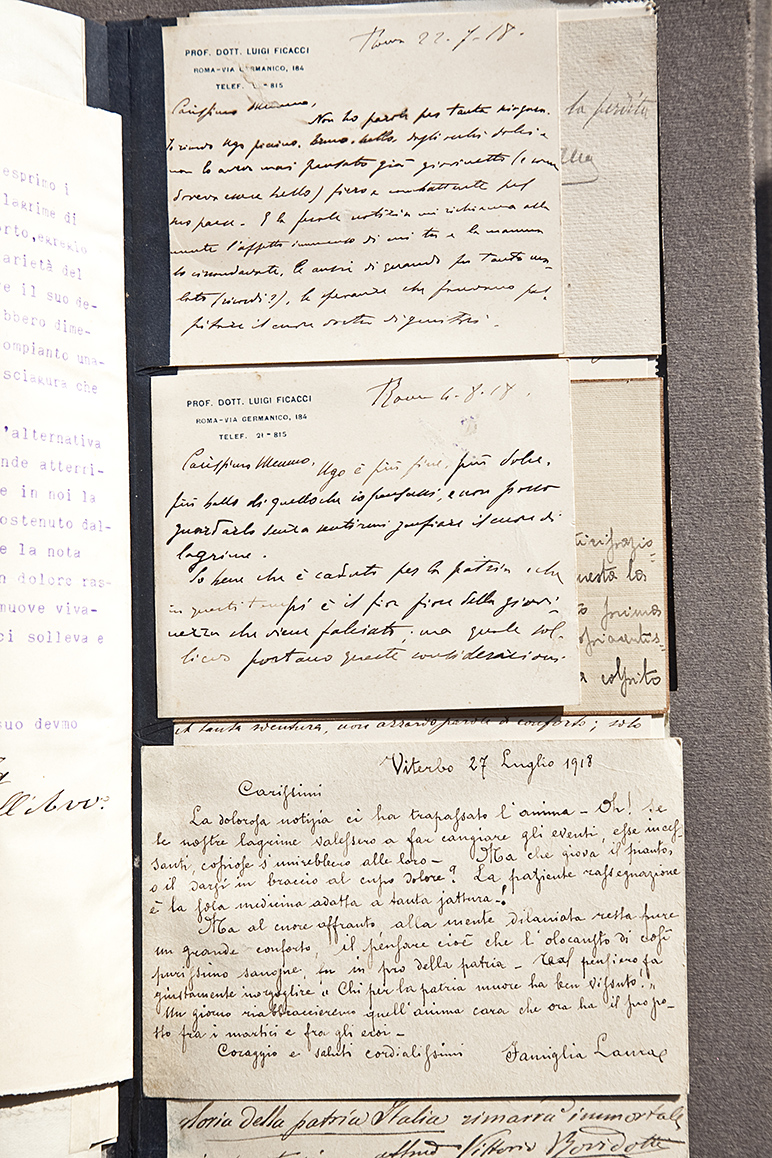 esprimo i
lagrime di
orto, egregio
arietà del
e il suo de-
bbero dime-
ompianto una-
sciagura che
'alternativa
nde atterri-
e in noi la
ostenuto dal-
e la nota
n dolore ras-
muove viva-
ci solleva e
suo devmo
PROF. DOTT. LUIGI FICACCI
ROMA-VIA GERMANICO, 184
TELEF. 21-815
Roma 22-7-18.
Carissimo Memmo,
Non ho parole per tanta
Ugo piccino, bruno, bello, dagli occhi dolci e
non lo avevo mai pensato già giovinetto (e come
doveva essere bello) fiero e combattente pel
suo paese. E la ferale notizia mi richiama alla
mente l'affetto immenso di cui tu e la mamma
lo circondavate, le ansie di quando fu tanto ma-
lato (ricordi?), le speranze che facevano pal-
pitare il cuore di genitori.
la perdita
PROF. DOTT. LUIGI FICACCI
ROMA-VIA GERMANICO, 184
TELEF. 21-815
Roma 4-8-18.
Carissimo Memmo, Ugo è più fine, più dolce,
più bello di quello che io pensassi, e non posso
guardarlo senza sentirmi gonfiare il cuore di
lagrime.
So bene che è caduto per la patria e che
in questi tempi è il fior fiore della giovi-
nezza che viene falciato; ma quale sol-
lievo portano queste considerazioni
questa la
prima
colpito
tanta sventura, non azzardo parole di conforto; solo
Viterbo 27 Luglio 1918
Carissimi
La dolorosa notizia ci ha trapassato l'anima - Oh! se
le nostre lagrime valessero a far cangiare gli eventi, esse inces-
santi, copiose s'unirebbero alle loro - Ma che giova il pianto,
o il darsi in braccio al cupo dolore? La paziente rassegnazione
è la sola medicina adatta a tanta jattura -!
Ma al cuore affranto, alla mente dilaniata resta pure
un grande conforto, il pensare cioè che l'olocausto di così
purissimo sangue, fu in pro della patria - Tal pensiero fa
giustamente inorgoglire "Chi per la patria muore ha ben vissuto!"
Un giorno riabbracceremo quell'anima cara che ora ha il suo po-
sto fra i martiri e fra gli eroi -
Coraggio e saluti cordialissimi Famiglia
storia della patria Italia rimarrà immortale
Vittorio